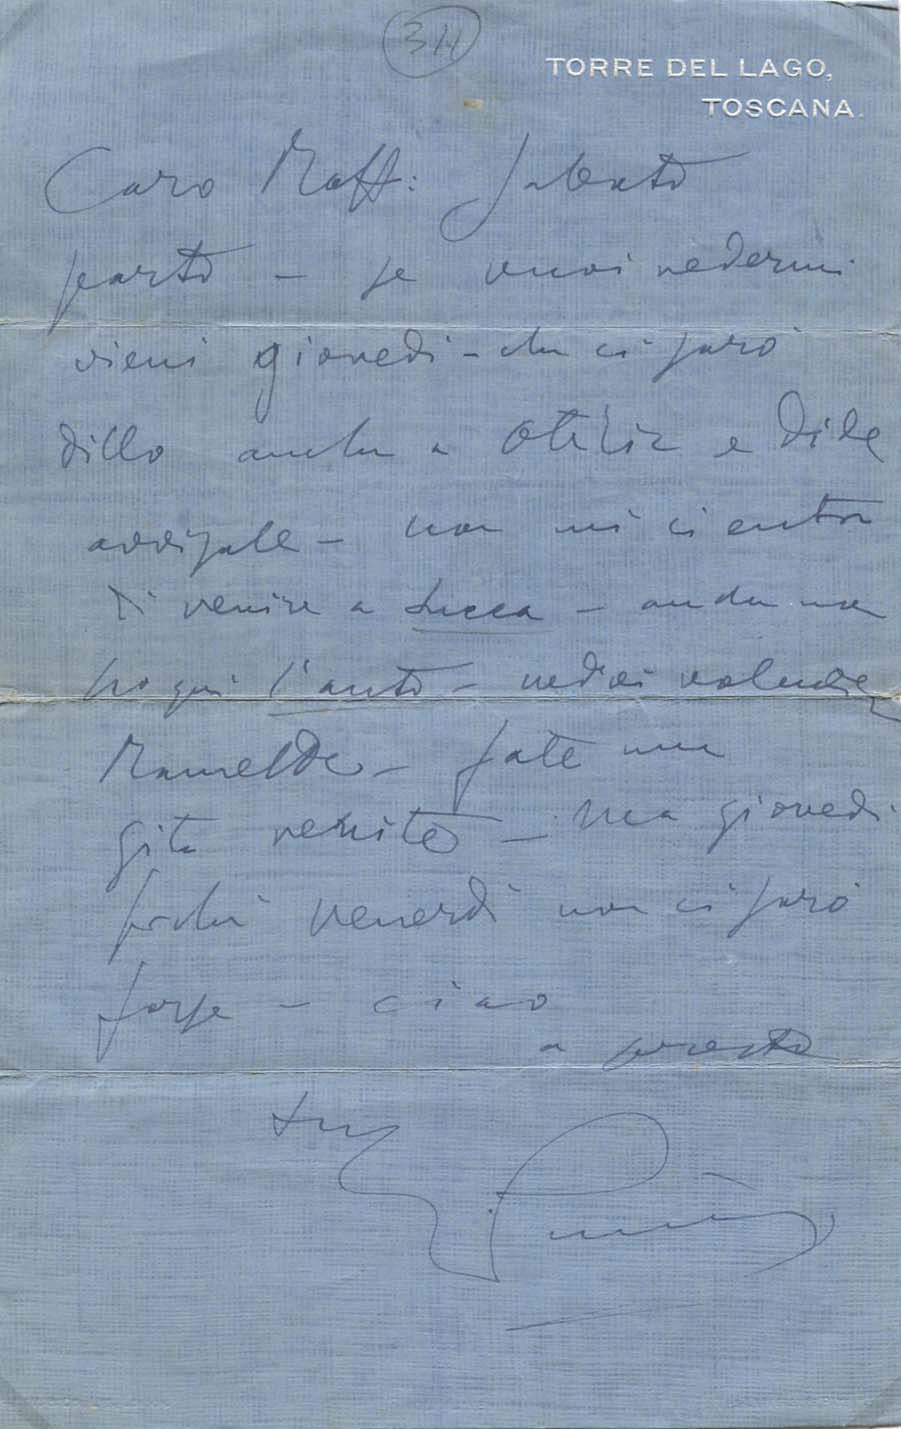 34
TORRE DEL LAGO,
TOSCANA.
Caro Raff: Sabato
parto – se vuoi vedermi
vieni giovedì – che ci sarò
dillo anche a Otilia e dile
avvisale – non mi ci entra
di venire a Lucca – anche non
ho qui l'auto – vedrai
Ramelde – fate una
gita venite – Ma giovedì
perché venerdì non ci sarò
forse – ciao
a presto
tuo